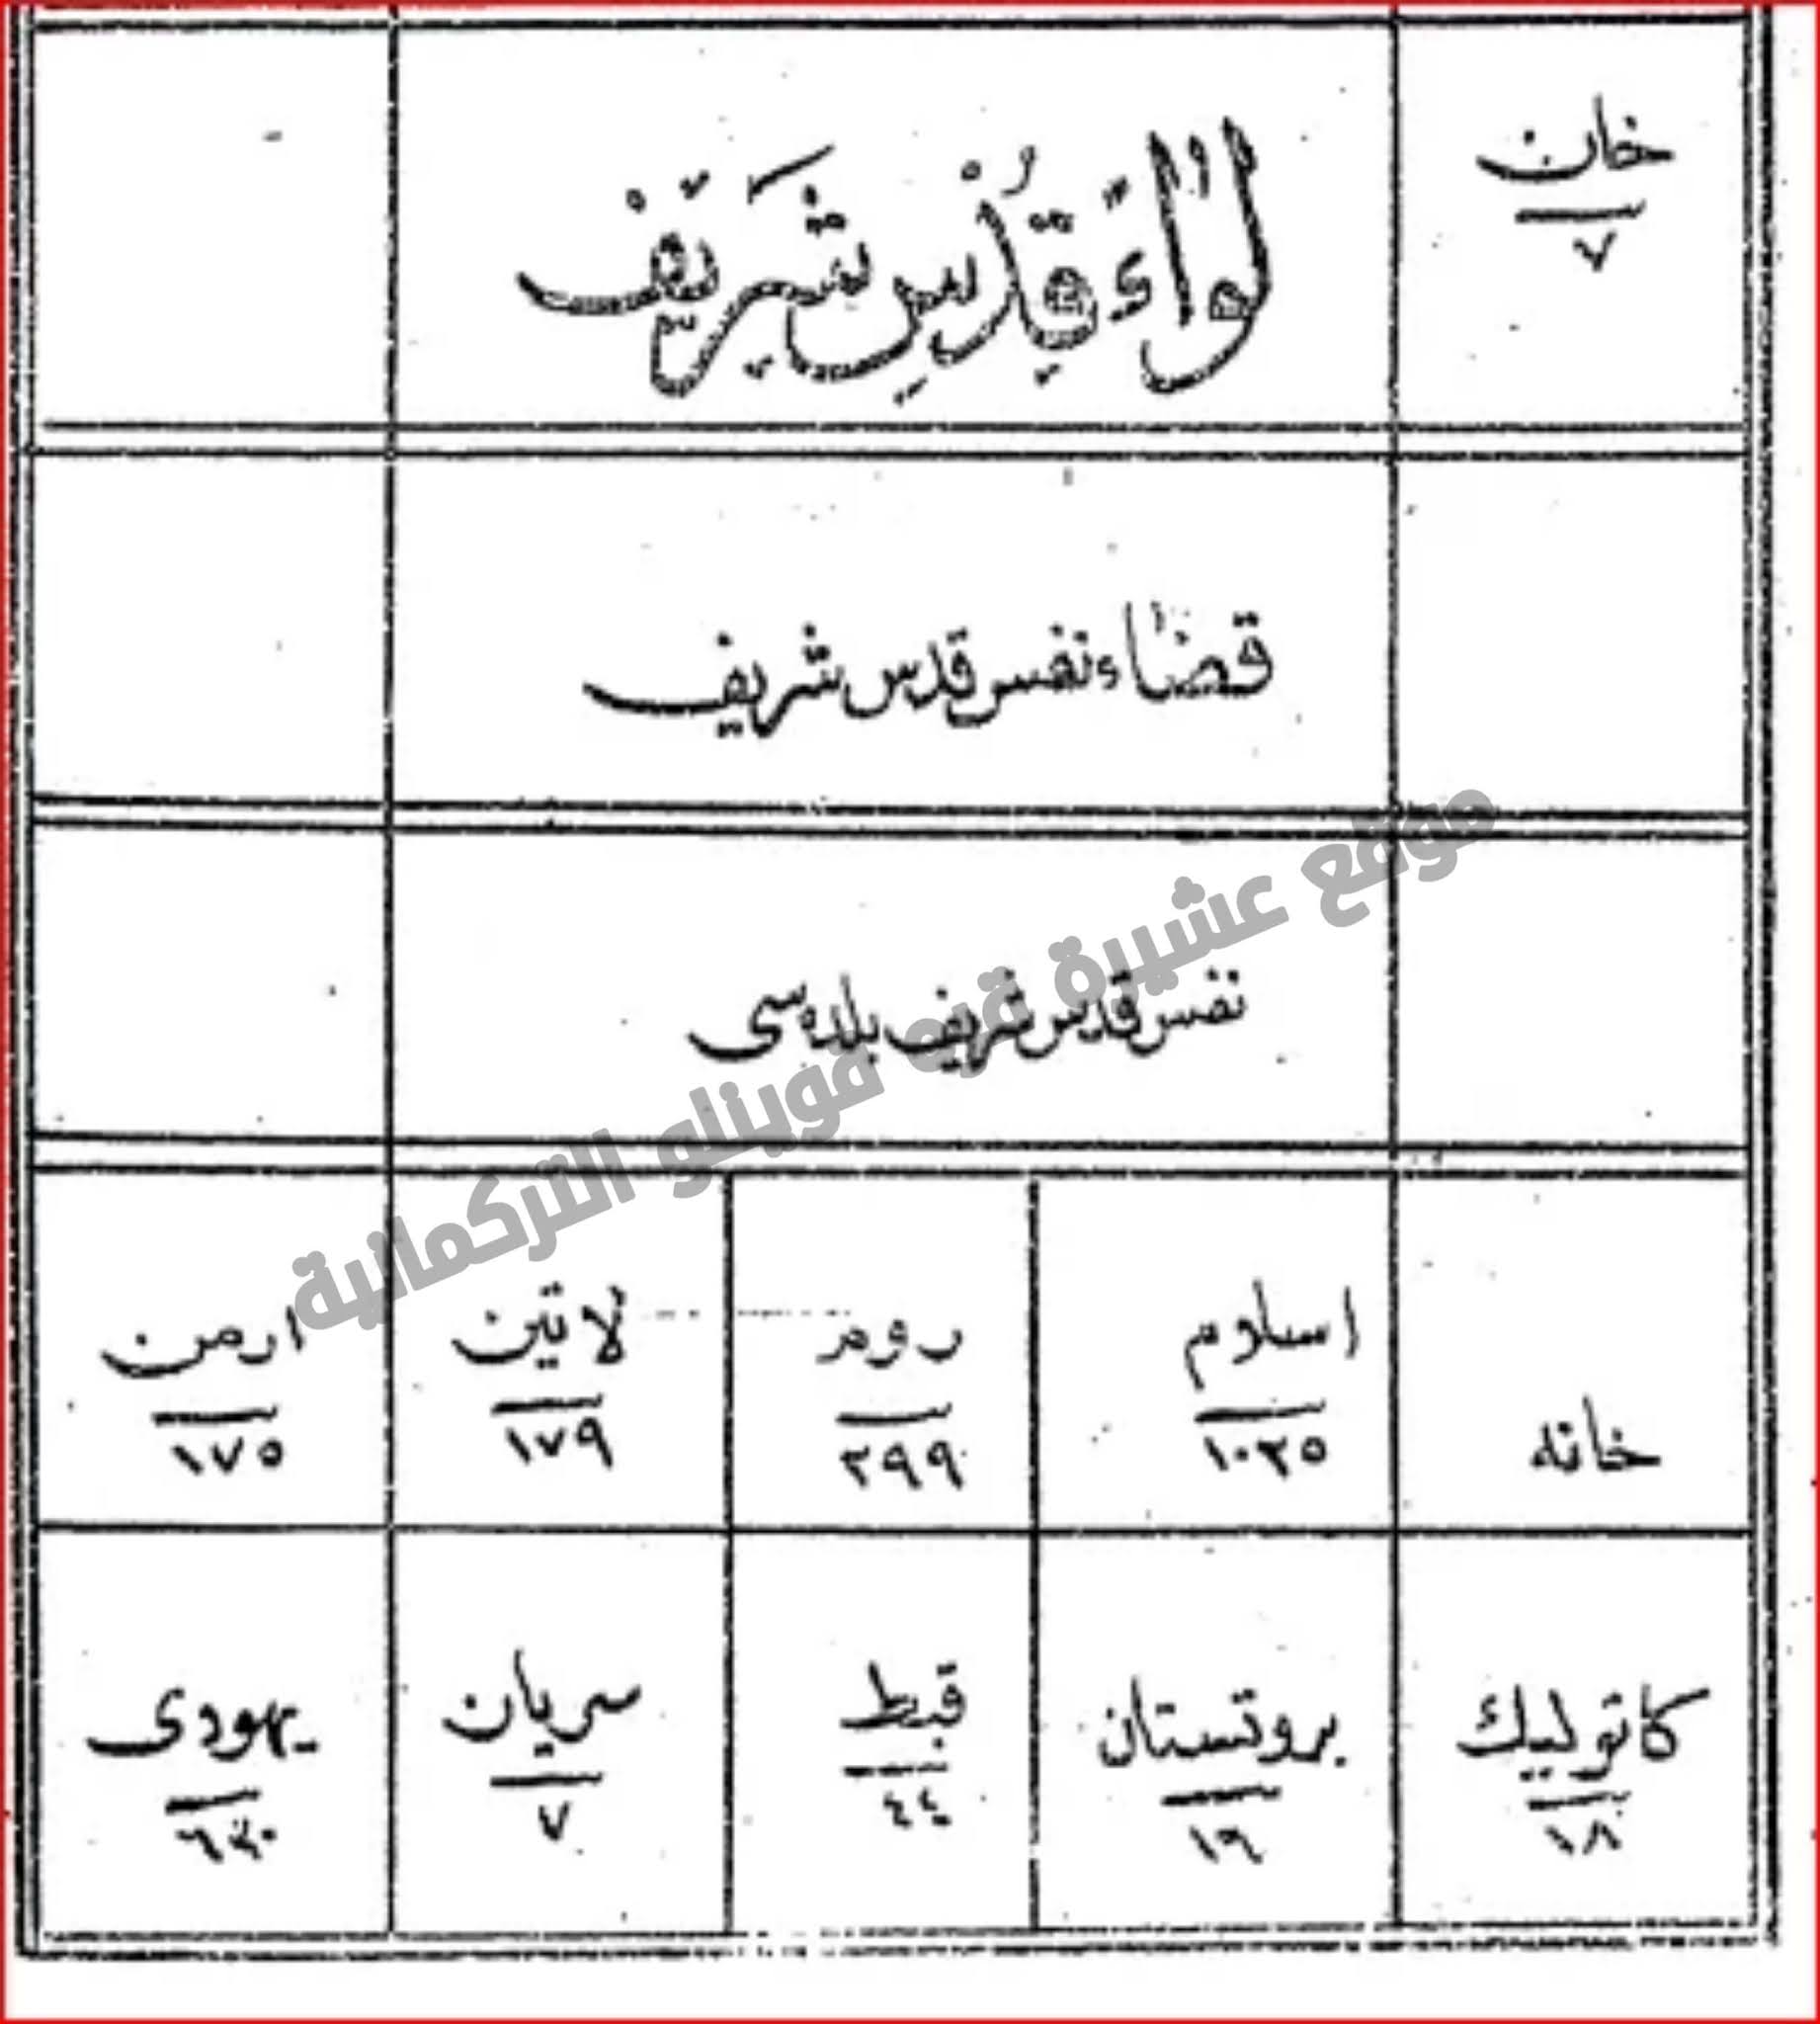 خان
٧
لواء قدس شريف
قضاء نفس قدس شريف
نفس قدس شريف بلده سى
خانه
اسلام
١٠٢٥
روم
٢٩٩
لاتين
١٧٩
ارمن
١٧٥
كاتوليك
١٨
بروتستان
١٦
قبط
٤٤
سريان
٧
يهودى
٦٣٠
موقع عشيرة قره قوينلو التركمانية